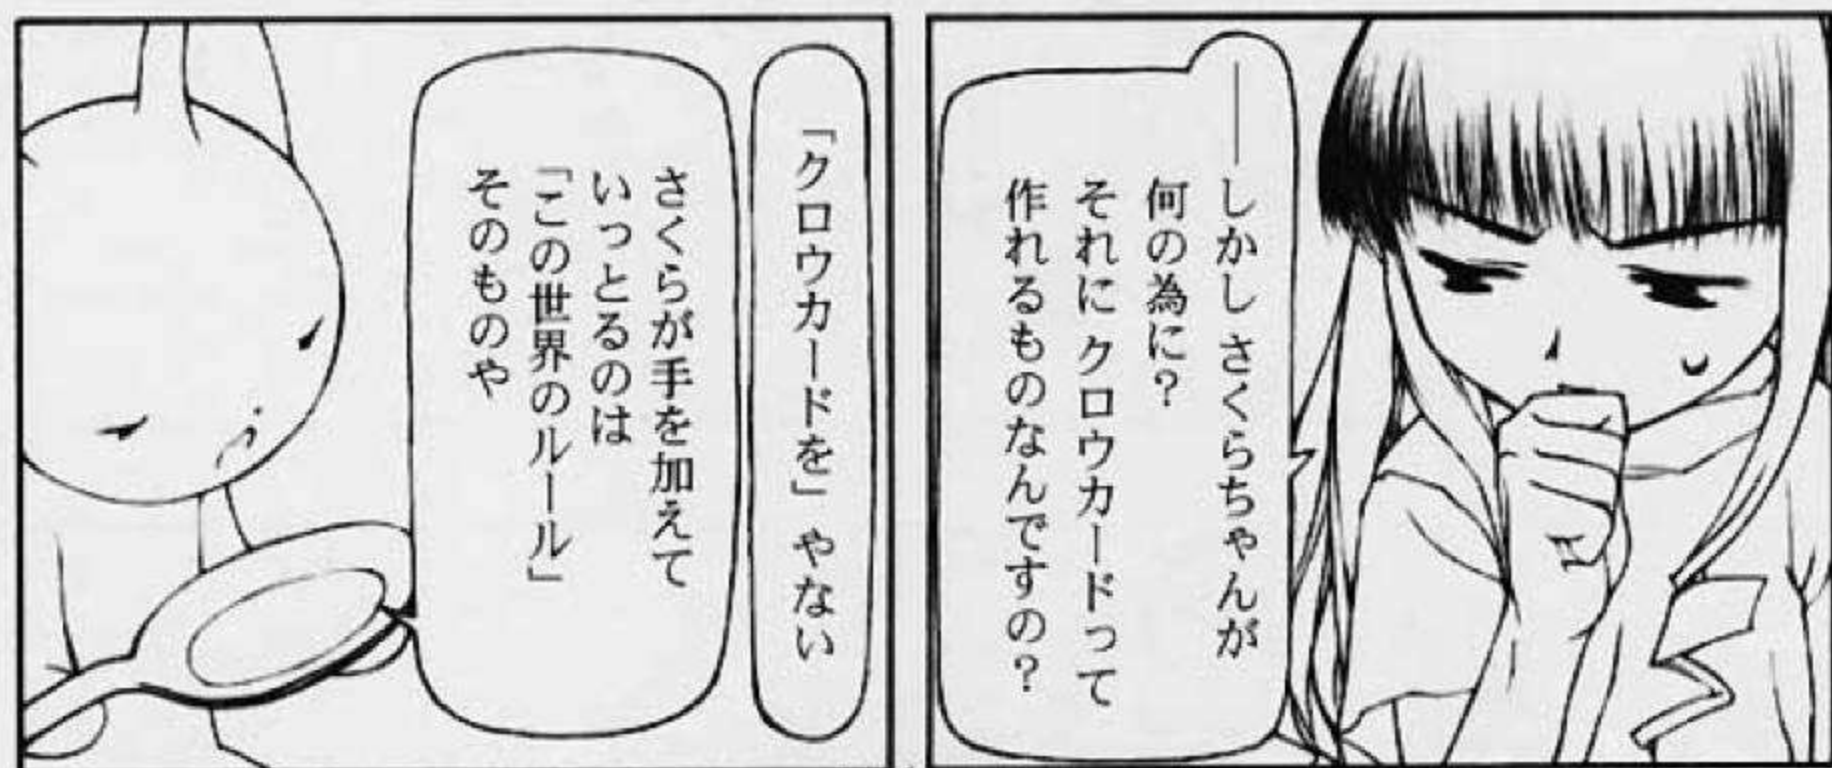 ――しかし さくらちゃんが
何の為に？
それに クロウカードって
作れるものなんですの？
「クロウカードを」やない
さくらが手を加えて
いっとるのは
「この世界のルール」
そのものや